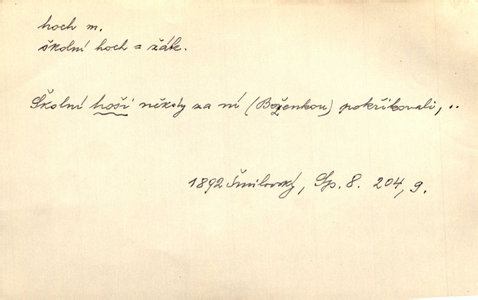 hoch m.
školní hoch a žák.
Školní hoši někdy za ní (Boženkou) pokřikovali, ..
1892 Šmilovský, Sp. 8. 204, 9.